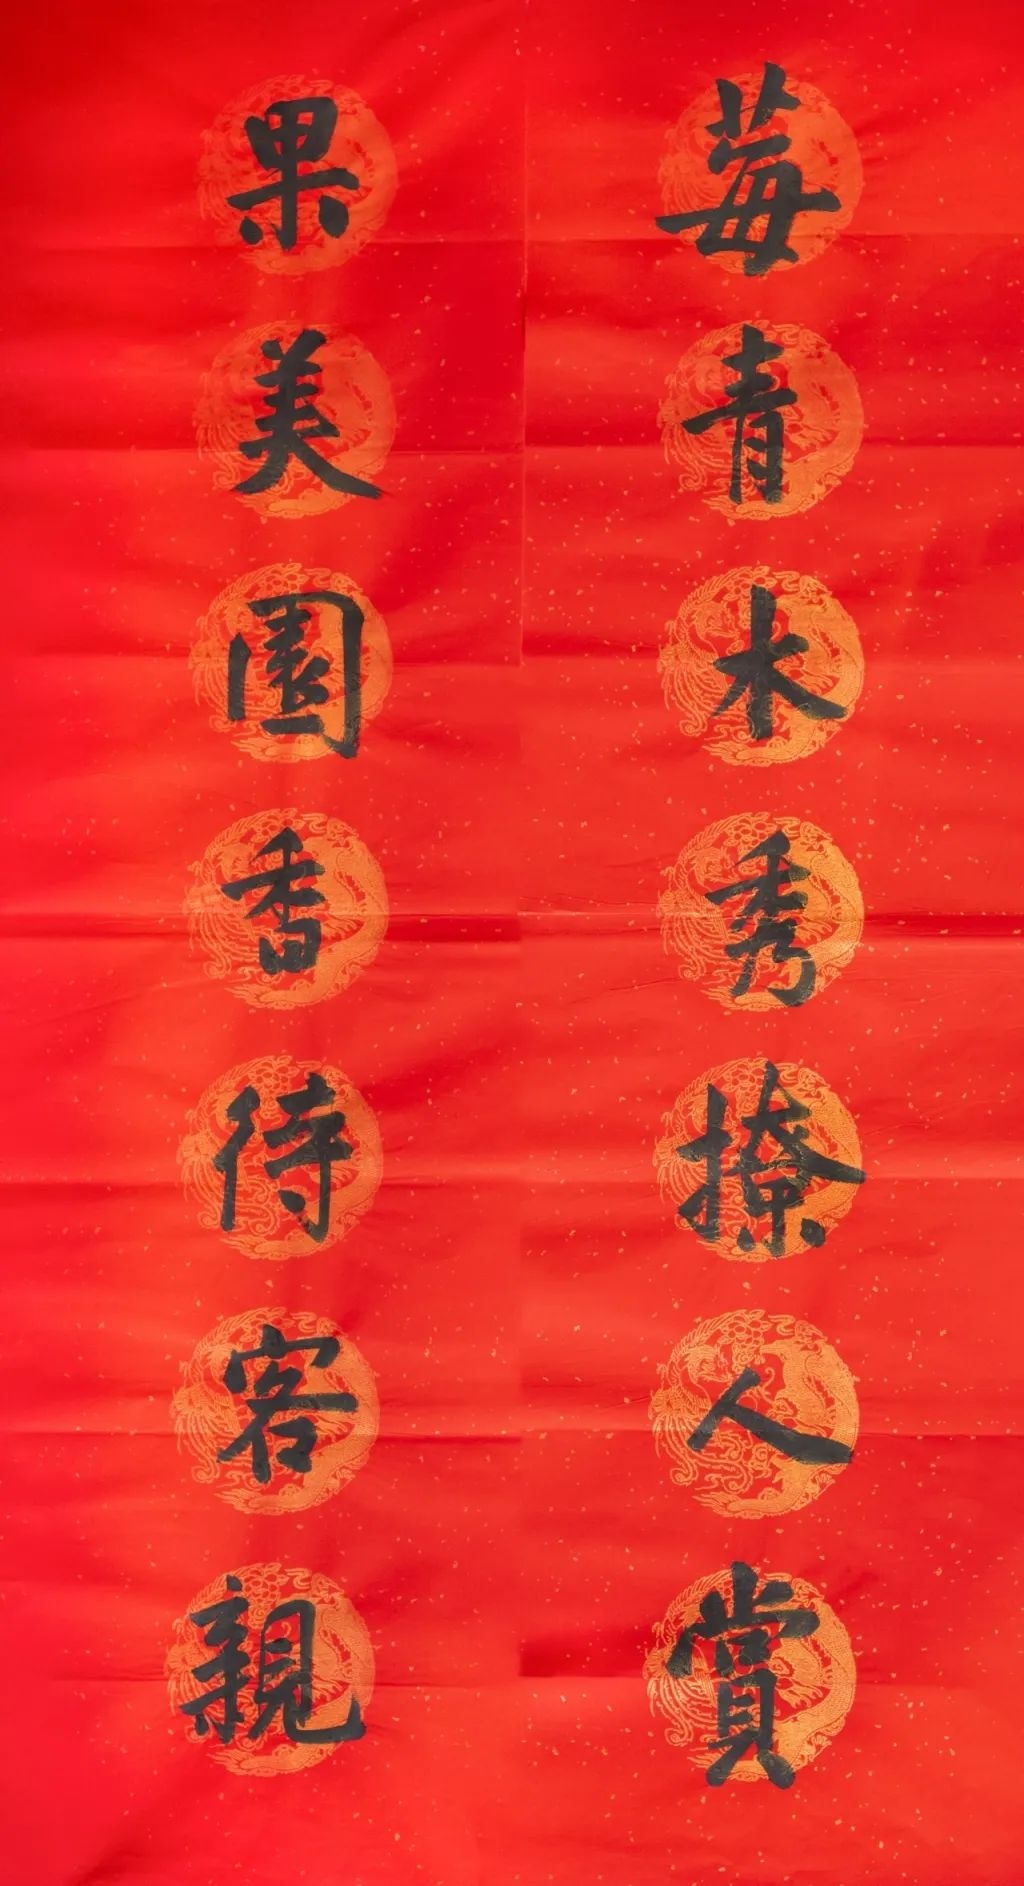 莓青木秀撩人賞
果美園香待客親